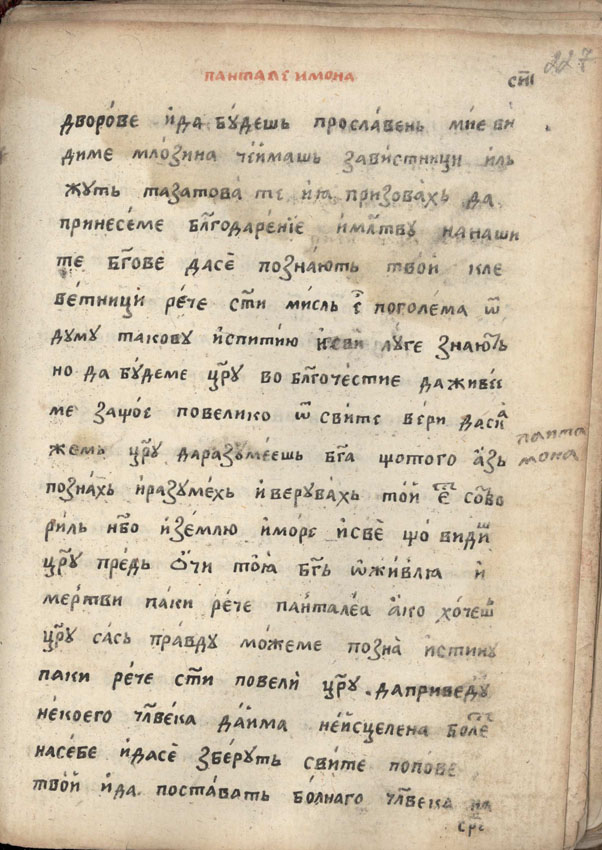 пан̾талеимона
227
дворо́ве и҆да бꙋ́дешь прославень мие ви
диме мло́зина че́имашь завистници иль
жꙋть тазатова те ию призовахь да
принесе́ме бл҃годаре́нїе имл҃твꙋ нанаши
те бг҃ове дасѐ позна́ють твои кле
ве́тници ре́че ст҃и мисль поголе́ма ѿ
дꙋмꙋ таковꙋ и҆спитию исви лꙋ́ге знають
но да бꙋ́деме цр҃ꙋ во бл҃гоче́стие даживе
ме защо́е повелико ѿ свите вери даска
жемь цр҃ꙋ даразꙋме́ешь бг҃а щотого а҆зь
познахь и҆разꙋме́хь и҆верꙋвахь то́и е͡ст сотво
риль нб҃о и҆зе́млю и҆море и҆свѐ що́ видиш
цр҃ꙋ пре́дь о҆чи твоиа бг҃ь ѡ҆живлꙗ и҆
ме́ртви паки ре́че пан̾тале́а а҆ко хо́чешь
цр҃ꙋ са́сь пра́вдꙋ мо́жеме позна̀ истинꙋ
паки ре́че ст҃и повелѝ цр҃ꙋ даприведꙋ
не́коего чл҃века да́има неи́сцелена боле́ст
насе́бе и҆дасѐ зберꙋть свите попове
твои и҆да поста́вать бо́лнаго чл҃века на
сре
панта
мона